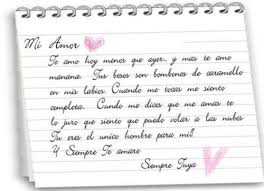 Mi Amor
Te amo hoy menos que ayer, y mas te amo
manana. Tus besos son bombones de caramello
en mis labios. Cuando me tocas me siento
completa. Cundo me dices que me amas te
lo juro que siento que puedo colar a las nubes
Tu eres el unico hombre para mi!!
Y Siempre Te amare
Siempre Tuya